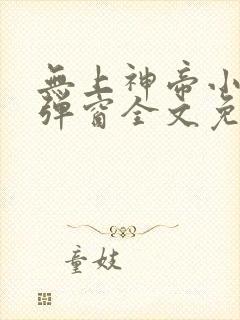 無上神帝小
彈窗全文免
童妓